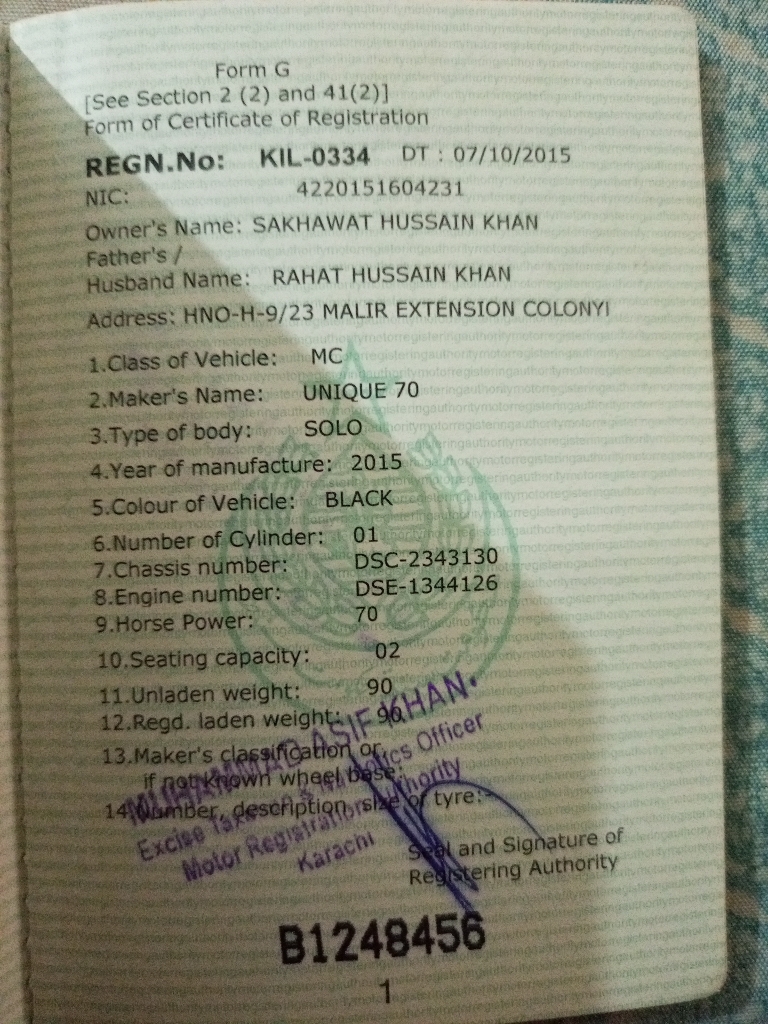 Form G
[See Section 2 (2) and 41(2)]
Form of Certificate of Registration
REGN.No: KIL-0334 DT : 07/10/2015
NIC: 4220151604231
Owner's Name: SAKHAWAT HUSSAIN KHAN
Father's /
Husband Name: RAHAT HUSSAIN KHAN
Address: HNO-H-9/23 MALIR EXTENSION COLONYI
1.Class of Vehicle: MC
2.Maker's Name: UNIQUE 70
3.Type of body: SOLO
4.Year of manufacture: 2015
5.Colour of Vehicle: BLACK
6.Number of Cylinder: 01
7.Chassis number: DSC-2343130
8.Engine number: DSE-1344126
9.Horse Power: 70
10.Seating capacity: 02
11.Unladen weight: 90
12.Regd. laden weight: 90
13.Maker's classification or,
if not known wheel base:
14.Number, description, size of tyre:-
MUHAMMAD ASIF KHAN.
Excise Taxation & Narcotics Officer
Motor Registration Authority
Karachi
Seal and Signature of
Registering Authority
B1248456
1